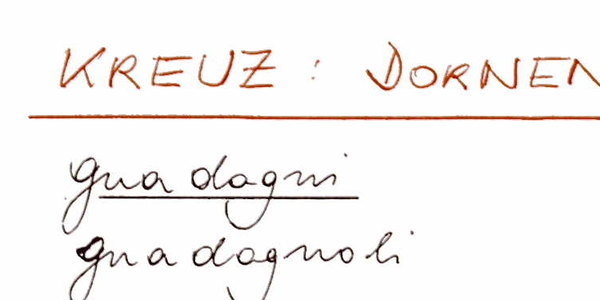 KREUZ : DORNEN
guadagni
guadagnoli